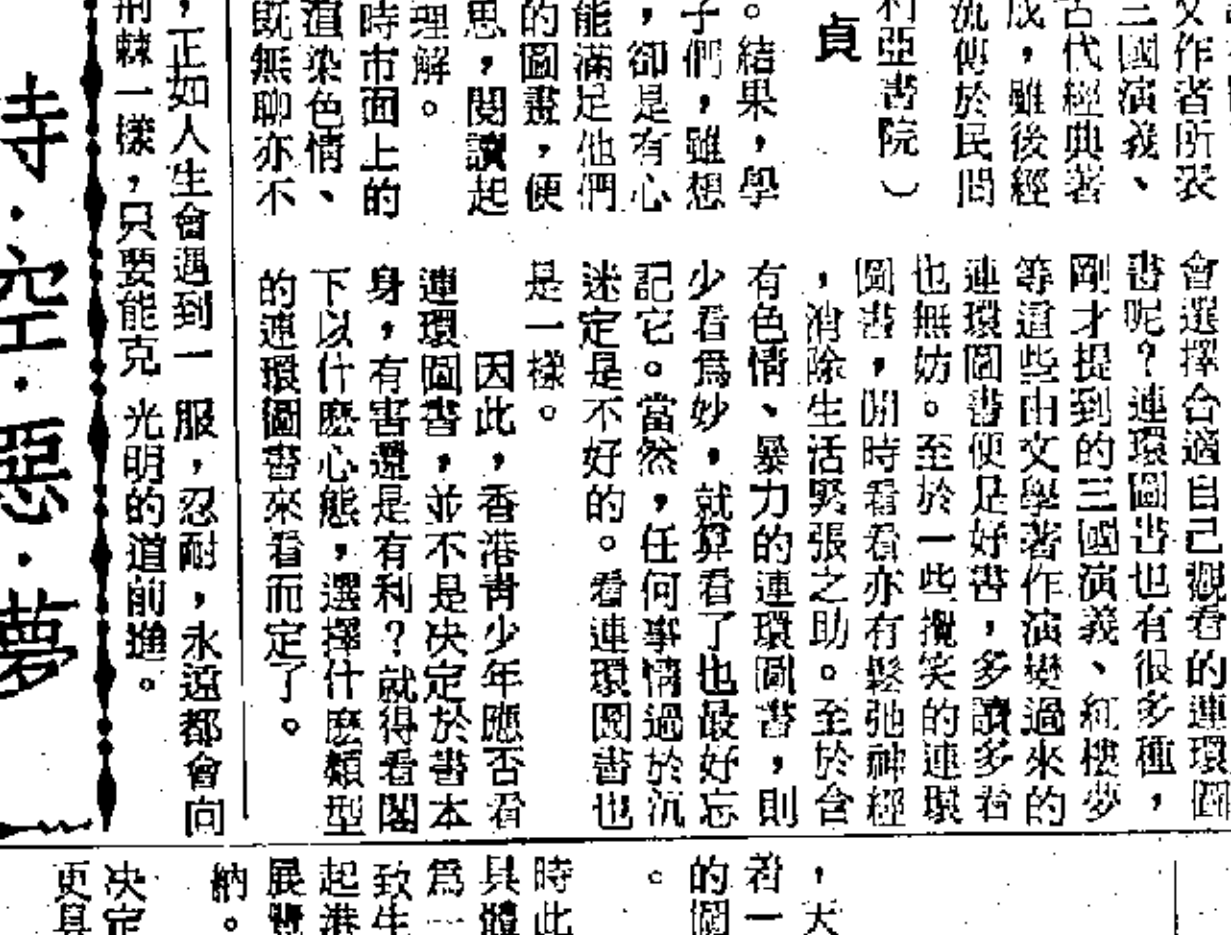 文作者所表
三國演義、
古代經典著
成，雖後經
流傳於民間
利亞書院）
貞
。結果，學
子們，雖想
，卻是有心
能滿足他們
的圖畫，便
思，閱讀起
理解。
時市面上的
渲染色情、
既無聊亦不
會選擇合適自己觀看的連環圖
書呢？連環圖書也有很多種，
剛才提到的三國演義、紅樓夢
等這些由文學著作演變過來的
連環圖書便是好書，多讀多看
也無妨。至於一些攪笑的連環
圖書，閒時看看亦有鬆弛神經
，消除生活緊張之助。至於含
有色情、暴力的連環圖書，則
少看爲妙，就算看了也最好忘
記它。當然，任何事情過於沉
迷定是不好的。看連環圖書也
是一樣。
因此，香港青少年應否看
連環圖書，並不是決定於書本
身，有害還是有利？就得看閣
下以什麼心態，選擇什麼類型
的連環圖書來看而定了。
，正如人生會遇到一
荆棘一樣，只要能克
服，忍耐，永遠都會向
光明的道前進。
時·空·惡·夢
，大
着一
的圖
。
時此
具體
爲一
致生
起港
展覽
納。
決定
更具